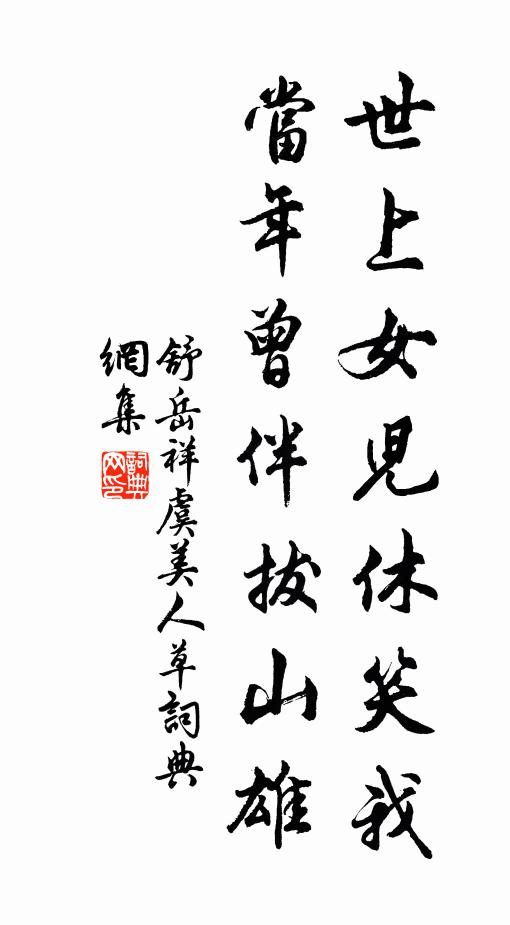 世上女児休笑我
當年曾伴拔山雄
舒岳祥虞美人草詞典
網集
詞典
网印